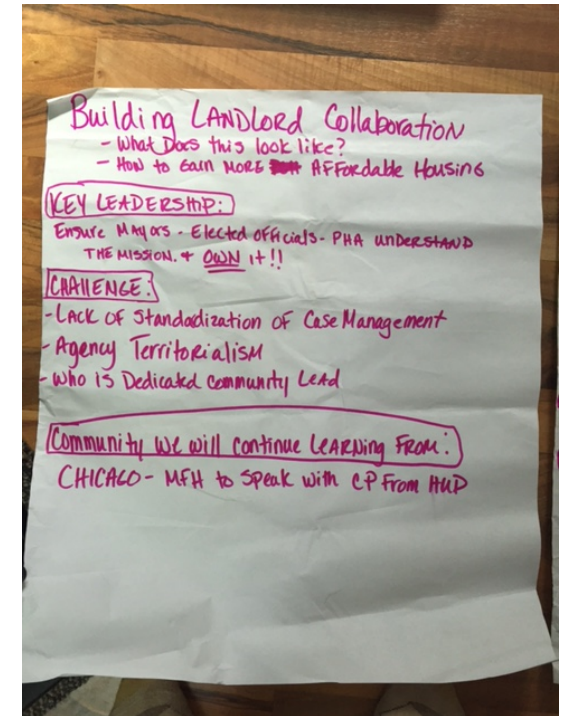 Building LANDLORD Collaboration
- What Does this look like?
- How to Earn MORE AFFordable Housing
KEY LEADERSHIP:
Ensure Mayors - Elected OFFicials - PHA UNDERSTAND
THE MISSION. + OWN it!!
CHAllENGE:
- LACK OF Standadization OF Case Management
- Agency Territorialism
- Who is Dedicated community LEAd
Community We will continue LEARNing From:
CHICAGO - MFH to Speak with CP From HUD